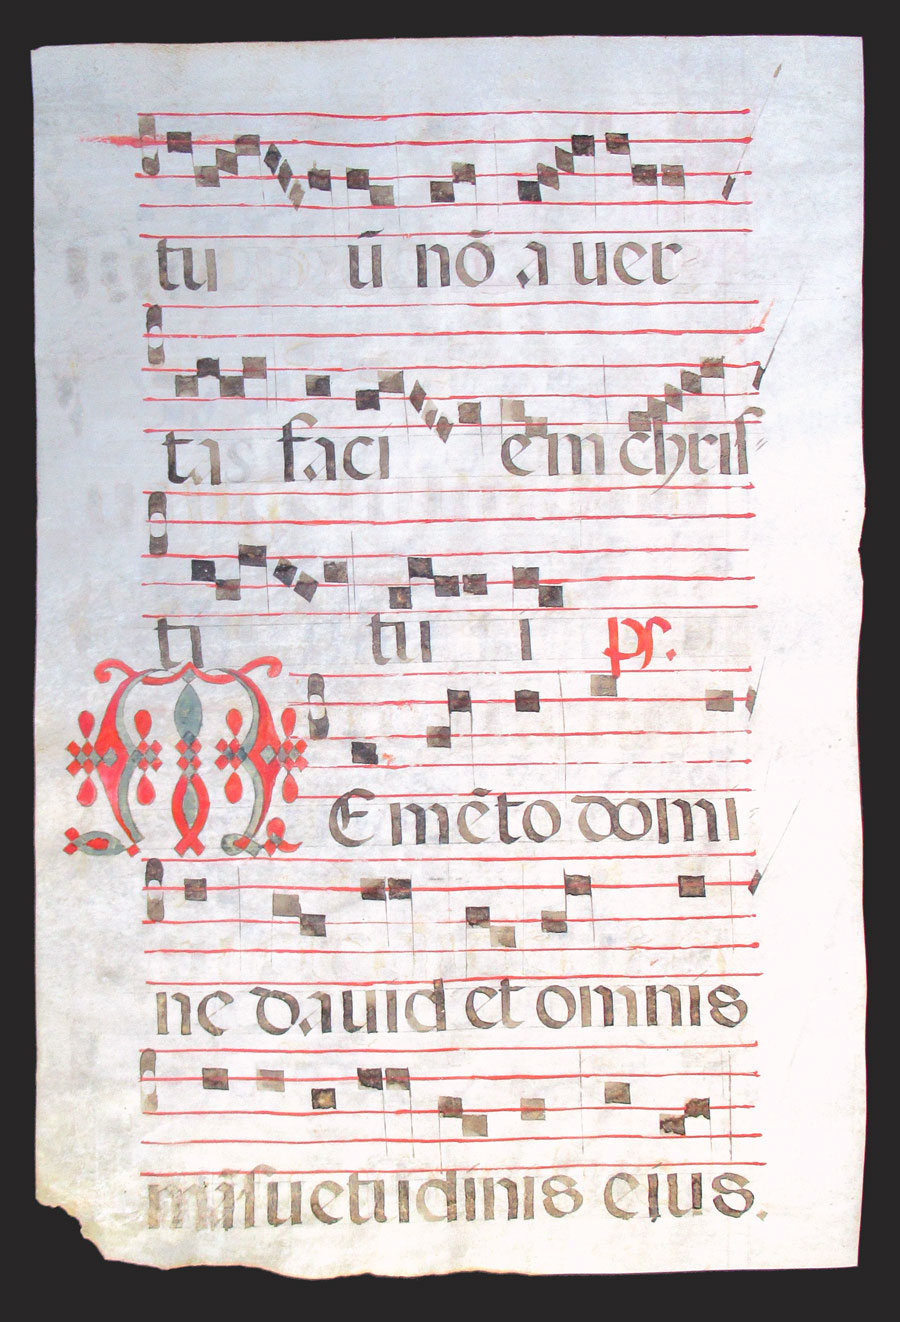 tu ū nō a uer
tas faci em chris
ti tu i ps.
MEmēto domi
ne dauid et omnis
māsuetudinis eius.